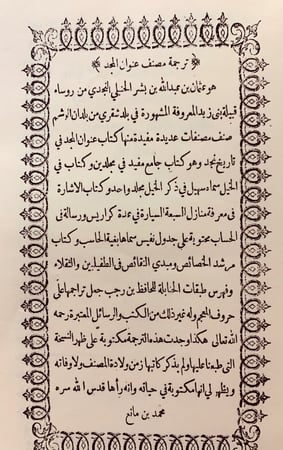 ﴿ ترجمة مصنف عنوان المجد ﴾
هو عثمان بن عبدالله بن بشر الحنبلي النجدي من روساء
قبيلة بني زيد المعروفة المشهورة في بلد شقرى من بلدان الوشم
صنف مصنفات عديدة مفيدة منها كتاب عنوان المجد في
تاريخ نجد وهو كتاب جامع مفيد في مجلدين وكتاب في
الخيل سماه سهيل في ذكر الخيل مجلد واحد وكتاب الاشارة
في معرفة منازل السبعة السيارة في عدة كراريس ورسالة في
الحساب محتوية على جدول نفيس سماها بغية الحاسب وكتاب
مرشد الخصائص ومبدي النقائص في الطفيليين والثقلاء
وفهرس طبقات الحنابلة للحافظ بن رجب جعل تراجمها على
حروف المعجم وله غير ذلك من الكتب والرسائل المعتبرة رحمه
الله تعالى هكذا وجدت هذه الترجمة مكتوبة على ظهر النسخة
التي طبعنا عليها ولم يذكر كاتبها زمن ولادة المصنف ولا وفاته
ويظهر لي انها مكتوبة في حياته وانه رأها قدس الله سره
محمد بن مانع